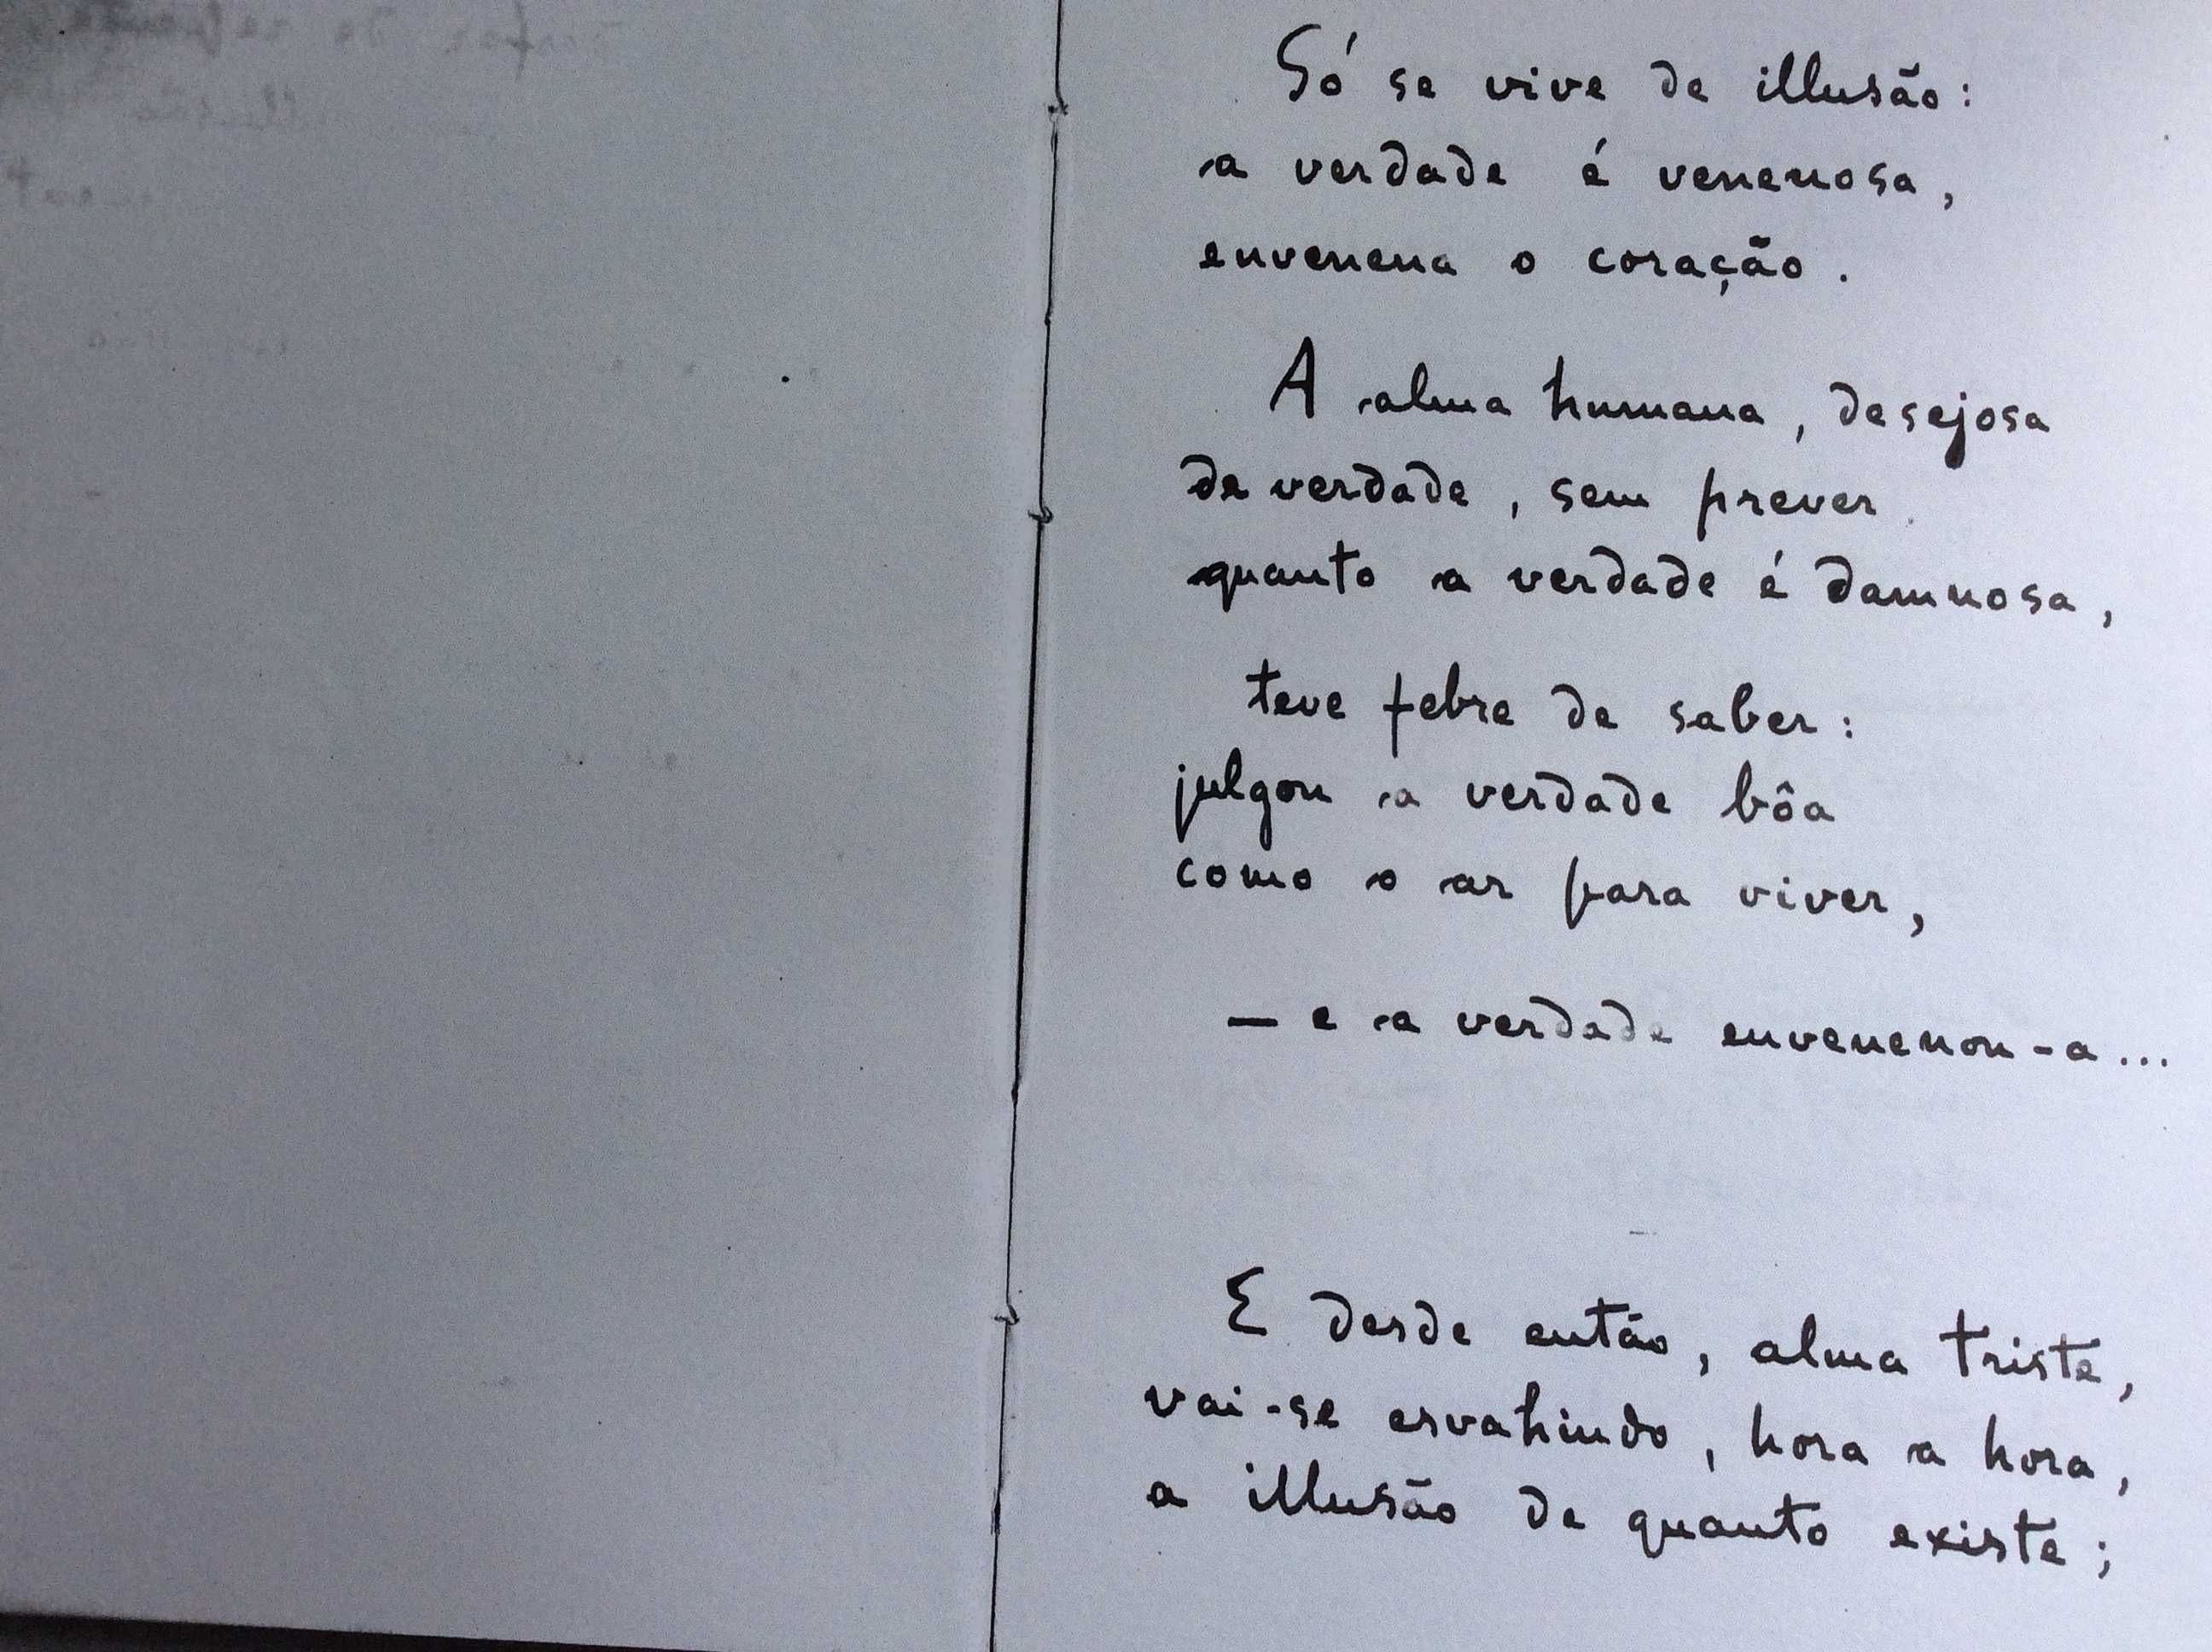 Só se vive de illusão:
a verdade é venenosa,
envenena o coração.
A alma humana, desejosa
de verdade, sem prever
quanto a verdade é damnosa,
teve febre de saber:
julgou a verdade bôa
como o ar para viver,
— e a verdade envenenou-a...
E desde então, alma triste,
vai-se esvahindo, hora a hora,
a illusão de quanto existe;